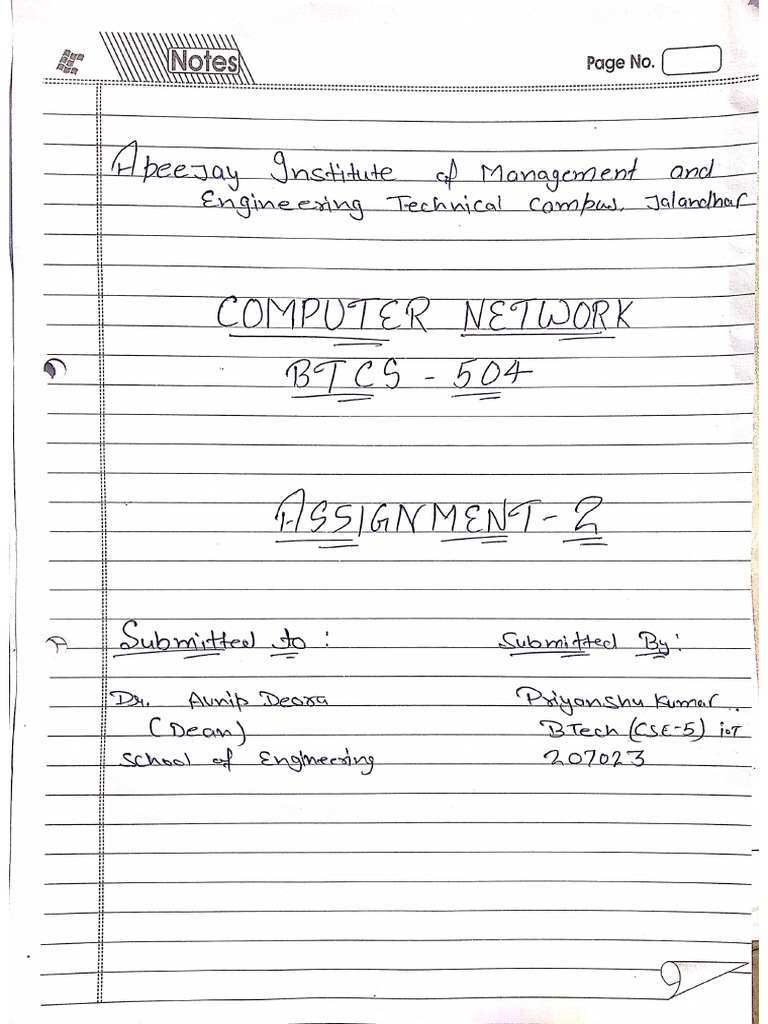 Notes
Page No.
Apeejay Institute of Management and
Engineering Technical Campus, Jalandhar
COMPUTER NETWORK
BTCS - 504
ASSIGNMENT-2
Submitted to :
Submitted By:
Dr. Avnip Deora
Priyanshu Kumar
(Dean)
BTech (CSE-5) IoT
School of Engineering
207023